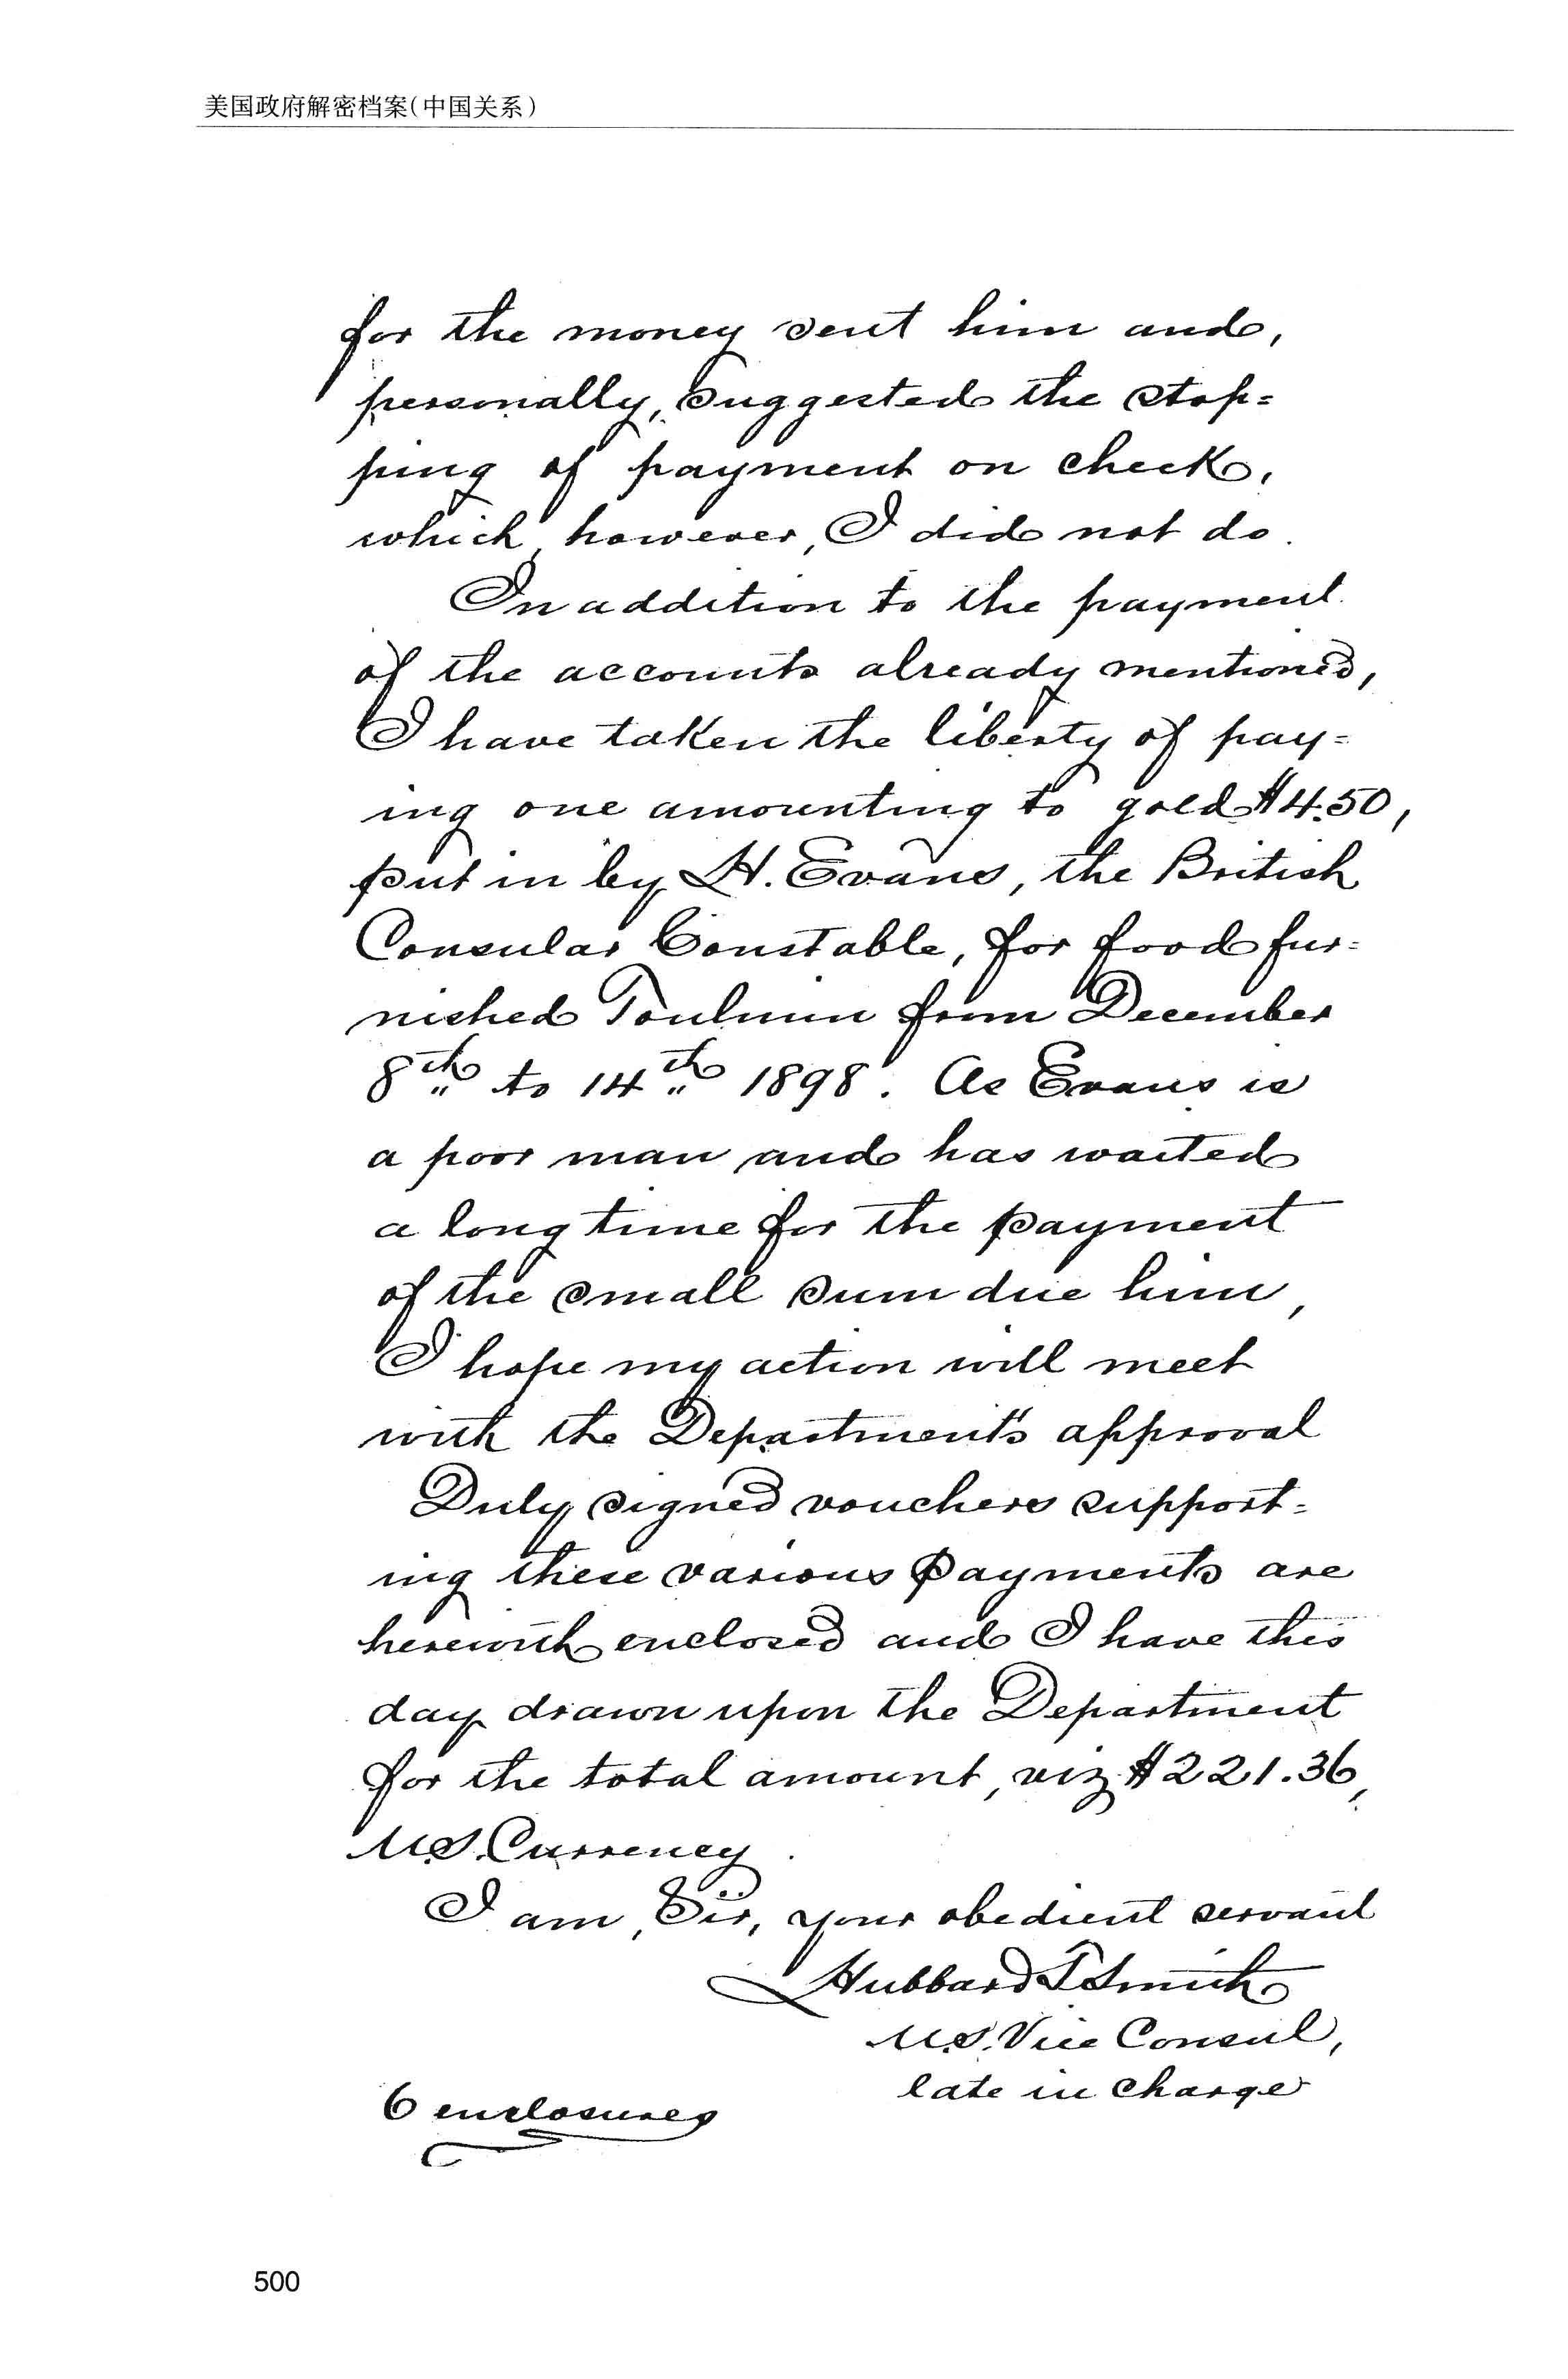 美国政府解密档案(中国关系)
for the money sent him and,
personally, suggested the stop=
ping of payment on check,
which, however, I did not do.
In addition to the payment
of the accounts already mentioned,
I have taken the liberty of pay=
ing one amounting to gold $4.50,
put in by H. Evans, the British
Consular Constable, for food fur=
nished Toulmin from December
8th to 14th 1898. As Evans is
a poor man and has waited
a long time for the payment
of the small sum due him,
I hope my action will meet
with the Department's approval
Duly signed vouchers support=
ing these various payments are
herewith enclosed and I have this
day drawn upon the Department
for the total amount, viz $221.36,
U.S. Currency.
I am, Sir, your obedient servant
Hubbard T. Smith
U.S. Vice Consul,
late in charge
6 enclosures
500